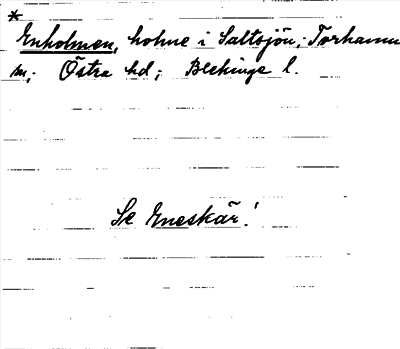 *
Enholmen, holme i Saltsjön; Torhamn
sn; Östra hd; Blekinge l.
Se Eneskär!